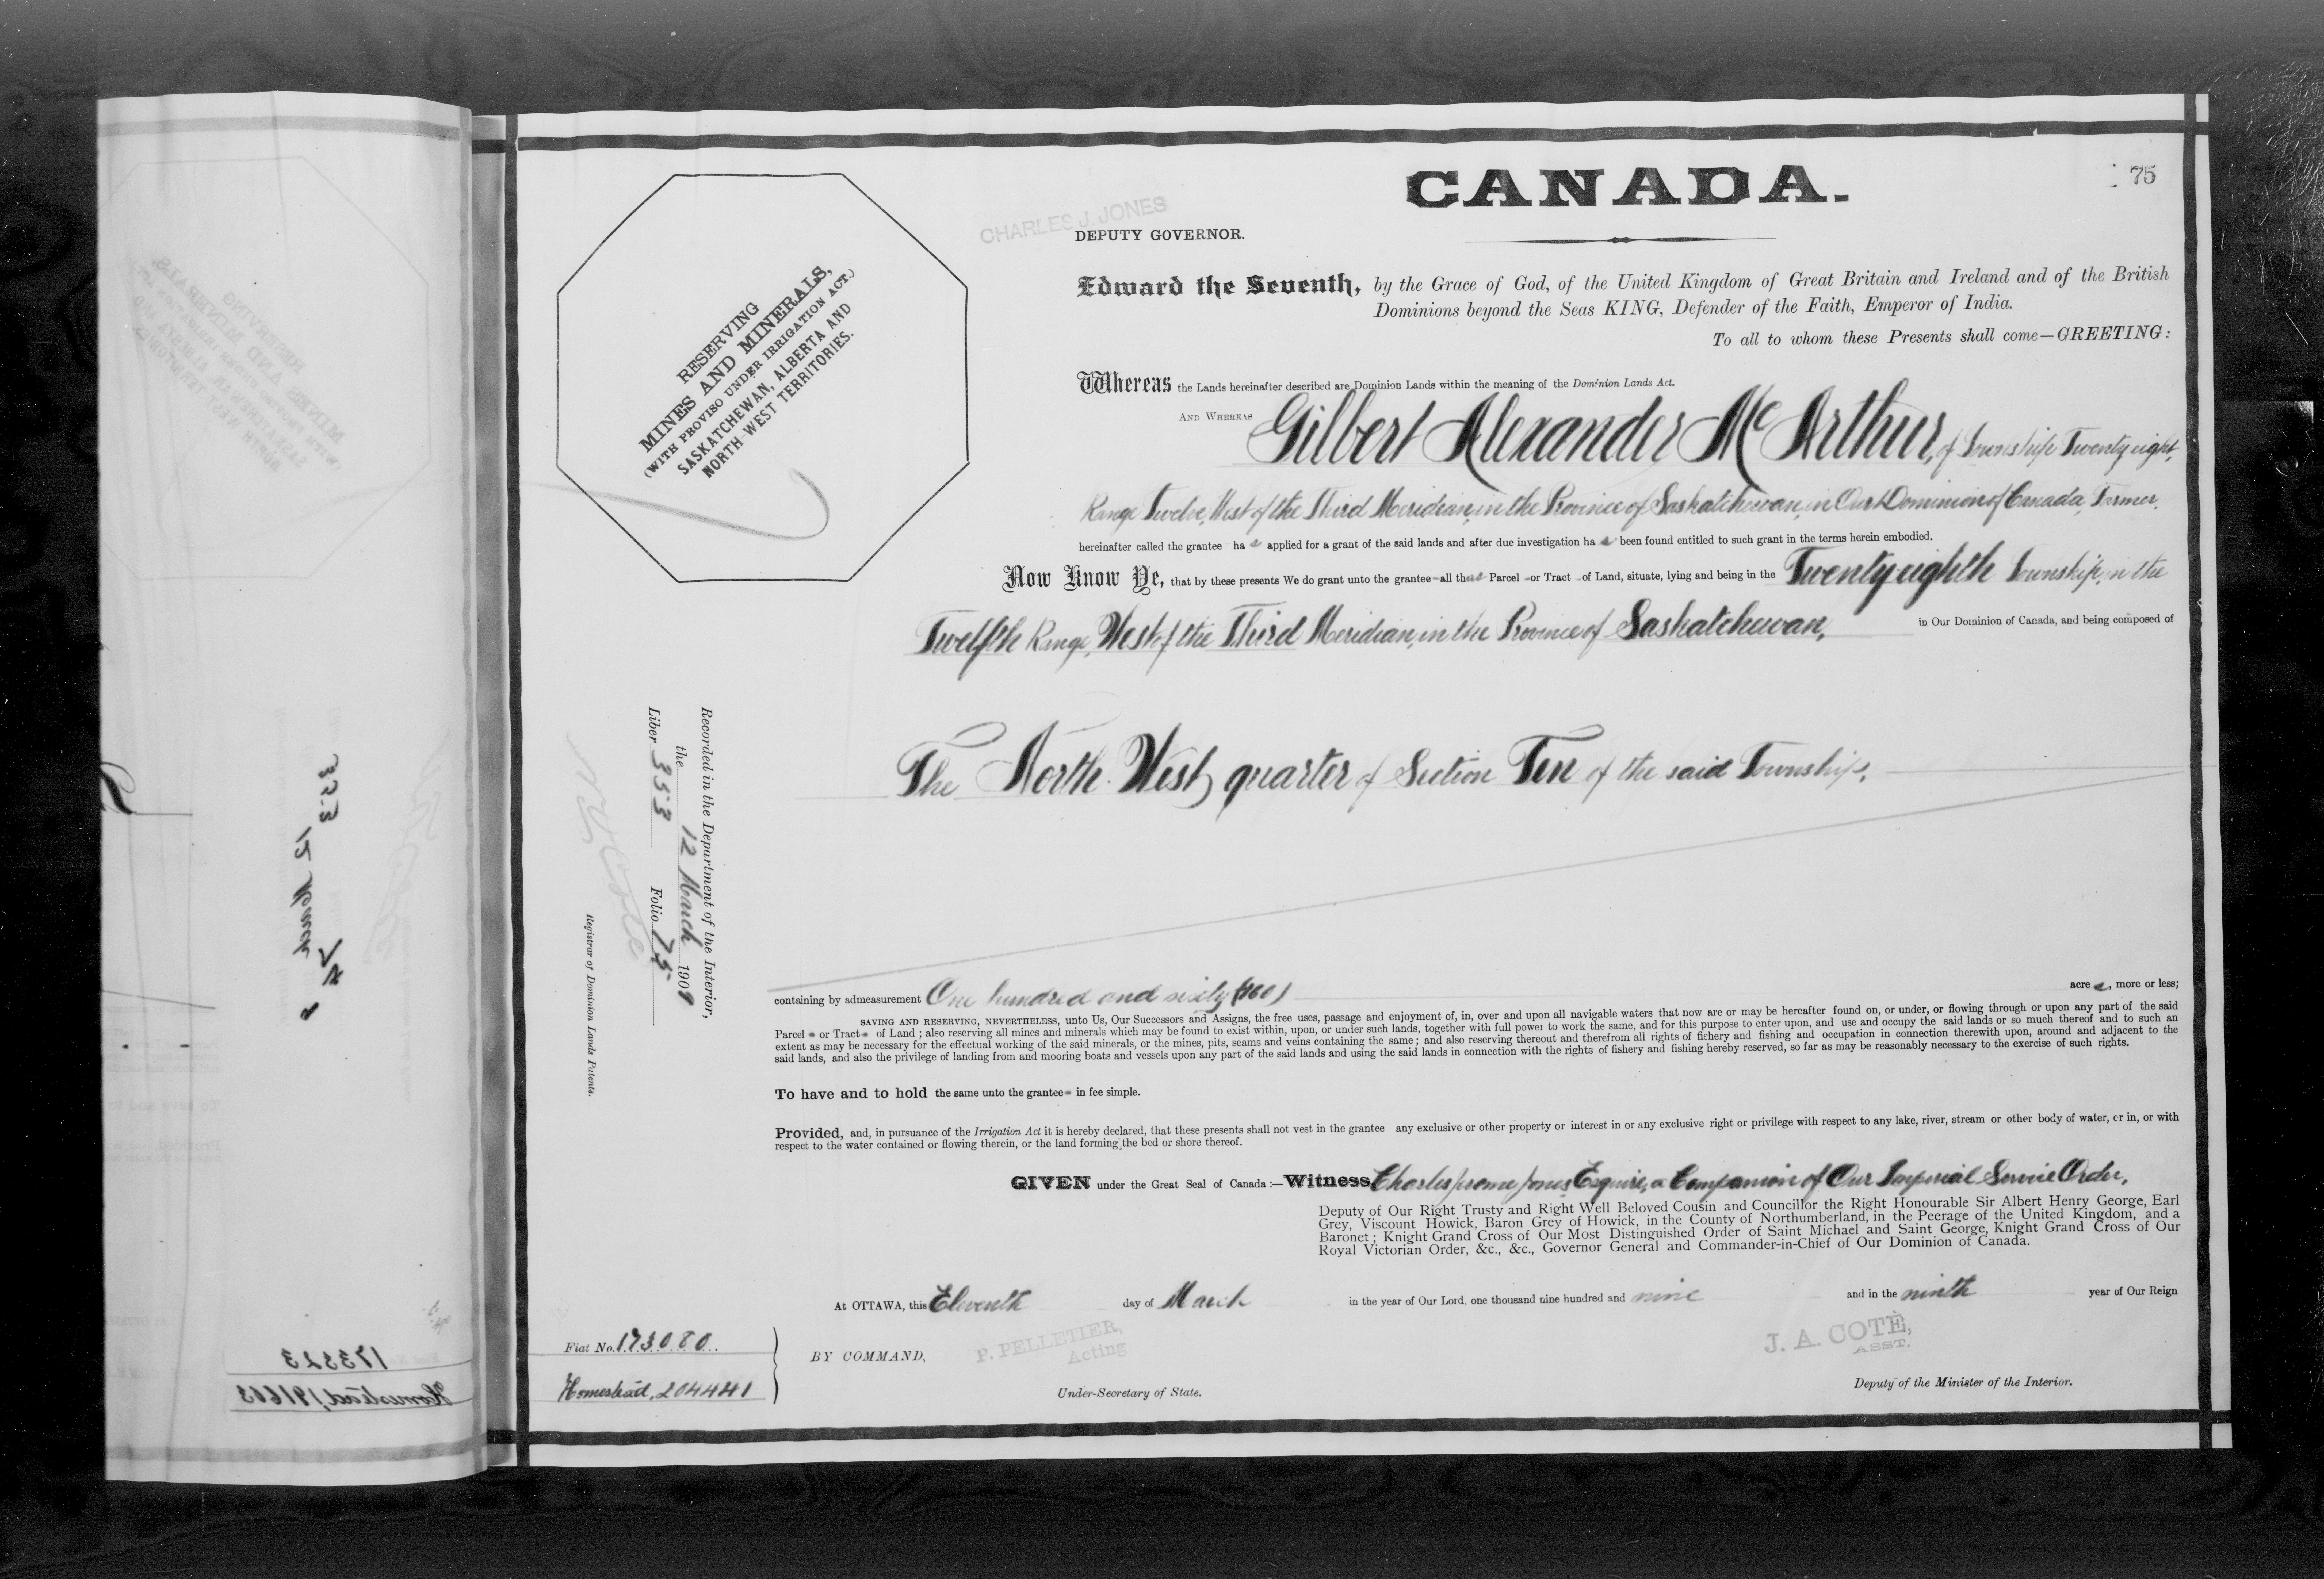 CANADA.
75
CHARLES J. JONES
DEPUTY GOVERNOR.
Edward the Seventh, by the Grace of God, of the United Kingdom of Great Britain and Ireland and of the British
Dominions beyond the Seas KING, Defender of the Faith, Emperor of India.
To all to whom these Presents shall come—GREETING:
RESERVING
MINES AND MINERALS,
(WITH PROVISO UNDER IRRIGATION ACT.)
SASKATCHEWAN, ALBERTA AND
NORTH WEST TERRITORIES.
Whereas the Lands hereinafter described are Dominion Lands within the meaning of the Dominion Lands Act.
AND WHEREAS Gilbert Alexander McArthur, of Township Twenty eight,
Range Twelve, West of the Third Meridian, in the Province of Saskatchewan, in Our Dominion of Canada, Farmer,
hereinafter called the grantee has applied for a grant of the said lands and after due investigation has been found entitled to such grant in the terms herein embodied.
Now Know Ye, that by these presents We do grant unto the grantee all that Parcel or Tract of Land, situate, lying and being in the Twenty eighth Township, in the
Twelfth Range, West of the Third Meridian, in the Province of Saskatchewan, in Our Dominion of Canada, and being composed of
The North West quarter of Section Ten of the said Township,
Recorded in the Department of the Interior,
the 12 March 1909
Liber 353 Folio 75
Registrar of Dominion Lands Patents.
containing by admeasurement One hundred and sixty (160) acres, more or less;
SAVING AND RESERVING, NEVERTHELESS, unto Us, Our Successors and Assigns, the free uses, passage and enjoyment of, in, over and upon all navigable waters that now are or may be hereafter found on, or under, or flowing through or upon any part of the said
Parcel or Tract of Land; also reserving all mines and minerals which may be found to exist within, upon, or under such lands, together with full power to work the same, and for this purpose to enter upon, and use and occupy the said lands or so much thereof and to such an
extent as may be necessary for the effectual working of the said minerals, or the mines, pits, seams and veins containing the same; and also reserving thereout and therefrom all rights of fishery and fishing and occupation in connection therewith upon, around and adjacent to the
said lands, and also the privilege of landing from and mooring boats and vessels upon any part of the said lands and using the said lands in connection with the rights of fishery and fishing hereby reserved, so far as may be reasonably necessary to the exercise of such rights.
To have and to hold the same unto the grantee in fee simple.
Provided, and, in pursuance of the Irrigation Act it is hereby declared, that these presents shall not vest in the grantee any exclusive or other property or interest in or any exclusive right or privilege with respect to any lake, river, stream or other body of water, or in, or with
respect to the water contained or flowing therein, or the land forming the bed or shore thereof.
GIVEN under the Great Seal of Canada:—Witness Charles Jerome Jones, Esquire, a Companion of Our Imperial Service Order,
Deputy of Our Right Trusty and Right Well Beloved Cousin and Councillor the Right Honourable Sir Albert Henry George, Earl
Grey, Viscount Howick, Baron Grey of Howick, in the County of Northumberland, in the Peerage of the United Kingdom, and a
Baronet; Knight Grand Cross of Our Most Distinguished Order of Saint Michael and Saint George, Knight Grand Cross of Our
Royal Victorian Order, &c., &c., Governor General and Commander-in-Chief of Our Dominion of Canada.
At OTTAWA, this Eleventh day of March in the year of Our Lord, one thousand nine hundred and nine and in the ninth year of Our Reign
Fiat No. 173080
Homestead, 204441
BY COMMAND,
P. PELLETIER,
Acting
Under-Secretary of State.
J. A. COTÉ,
ASST.
Deputy of the Minister of the Interior.
173323
Homestead, 191663